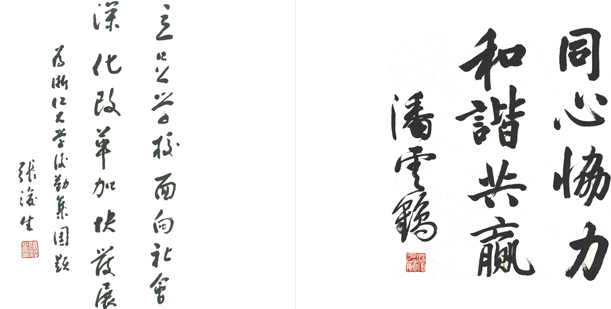 立足学校面向社會
深化改革加快發展
为浙江大学後勤集团题
張浚生
同心協力
和諧共贏
潘雲鶴